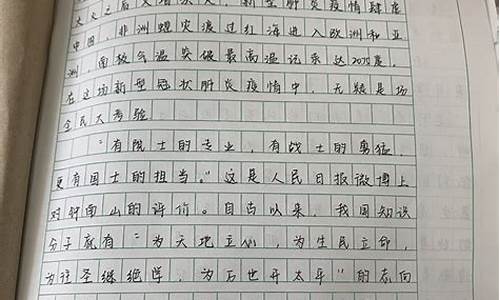 大火之后又增添火，新型肺炎疫情肆虐
中国，非洲蝗灾渡过红海进入欧洲和亚
洲，南极气温突破最高温记录达20.75度，
在这场新型冠状肺炎疫情中，无疑是场
全民大考验
“有院士的专业，有战士的勇猛，
更有国士的担当。”这是人民日报微博上
对钟南山的评价。自古以来，我国知识
分子就有“为天地立心，为生民立命，
为往圣继绝学，为万世开太平”的志向